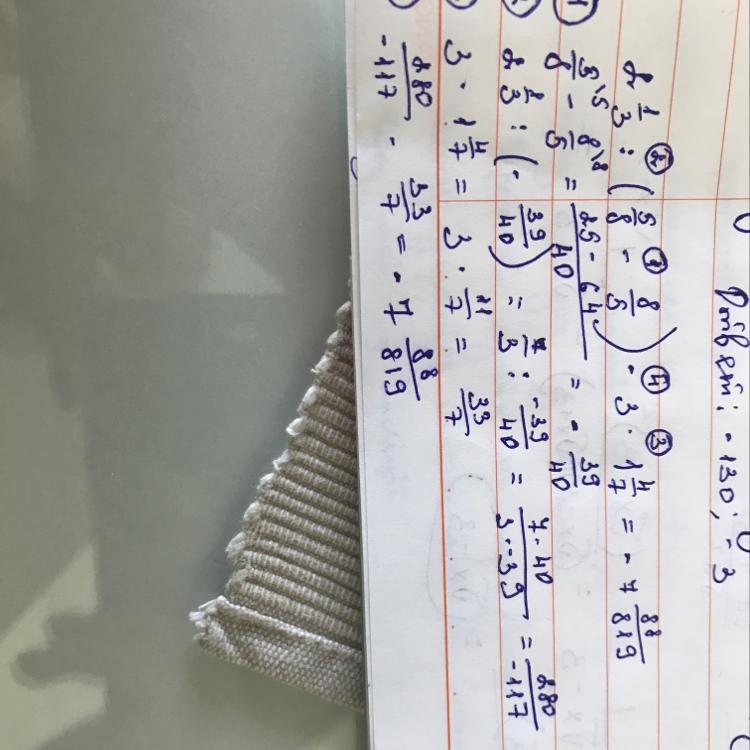 Ответ: -130; -3
② ① ④ ③
2 1/3 : (5/8 - 8/5) - 3 · 1 4/7 = - 7 88/819
① 5\5/8 - 8\8/5 = 25-64/40 = - 39/40
2 1/3 : (- 39/40) = 7/3 : -39/40 = 7·40/3·-39 = 280/-117
3 · 1 4/7 = 3 · 11/7 = 33/7
280/-117 - 33/7 = - 7 88/819